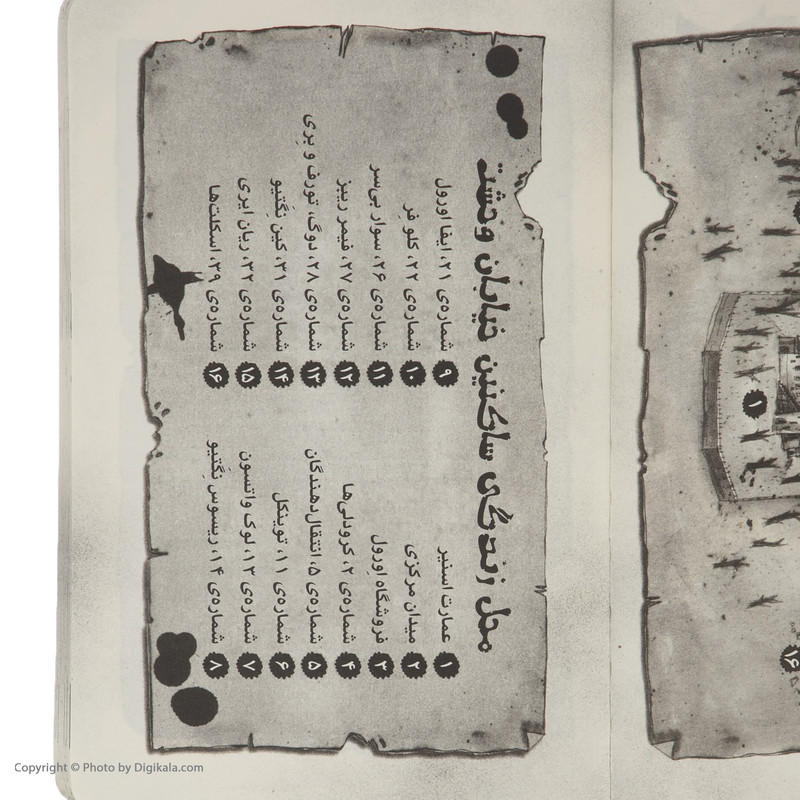 محل زندگی ساکنین خیابان وحشت
۱ عمارت اسنیر
۲ میدان مرکزی
۳ فروشگاه اِورول
۴ شماره‌ی ۲، کرودلی‌ها
۵ شماره‌ی ۵، انتقال‌دهندگان
۶ شماره‌ی ۱۱، توینکل
۷ شماره‌ی ۱۳، لوک واتسون
۸ شماره‌ی ۱۴، ریسوس نِگَتیو
۹ شماره‌ی ۲۱، ایفا اورول
۱۰ شماره‌ی ۲۲، کلو فر
۱۱ شماره‌ی ۲۶، سوار بی‌سر
۱۲ شماره‌ی ۲۷، فیمر ریبز
۱۳ شماره‌ی ۲۸، دوگ، تورف و بری
۱۴ شماره‌ی ۳۱، کین نِگَتیو
۱۵ شماره‌ی ۳۲، ریان ایری
۱۶ شماره‌ی ۳۹، اسکلت‌ها
۱
۱۶
Copyright © Photo by Digikala.com